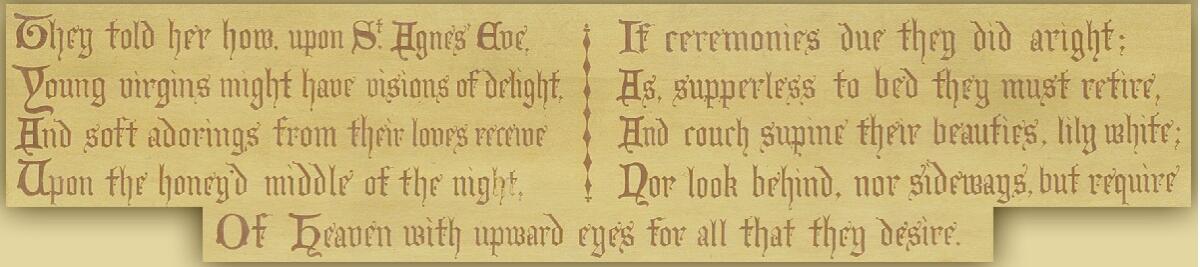 They told her how, upon St. Agnes' Eve,
Young virgins might have visions of delight,
And soft adorings from their loves receive
Upon the honey'd middle of the night,
If ceremonies due they did aright;
As, supperless to bed they must retire,
And couch supine their beauties, lily white;
Nor look behind, nor sideways, but require
Of Heaven with upward eyes for all that they desire.